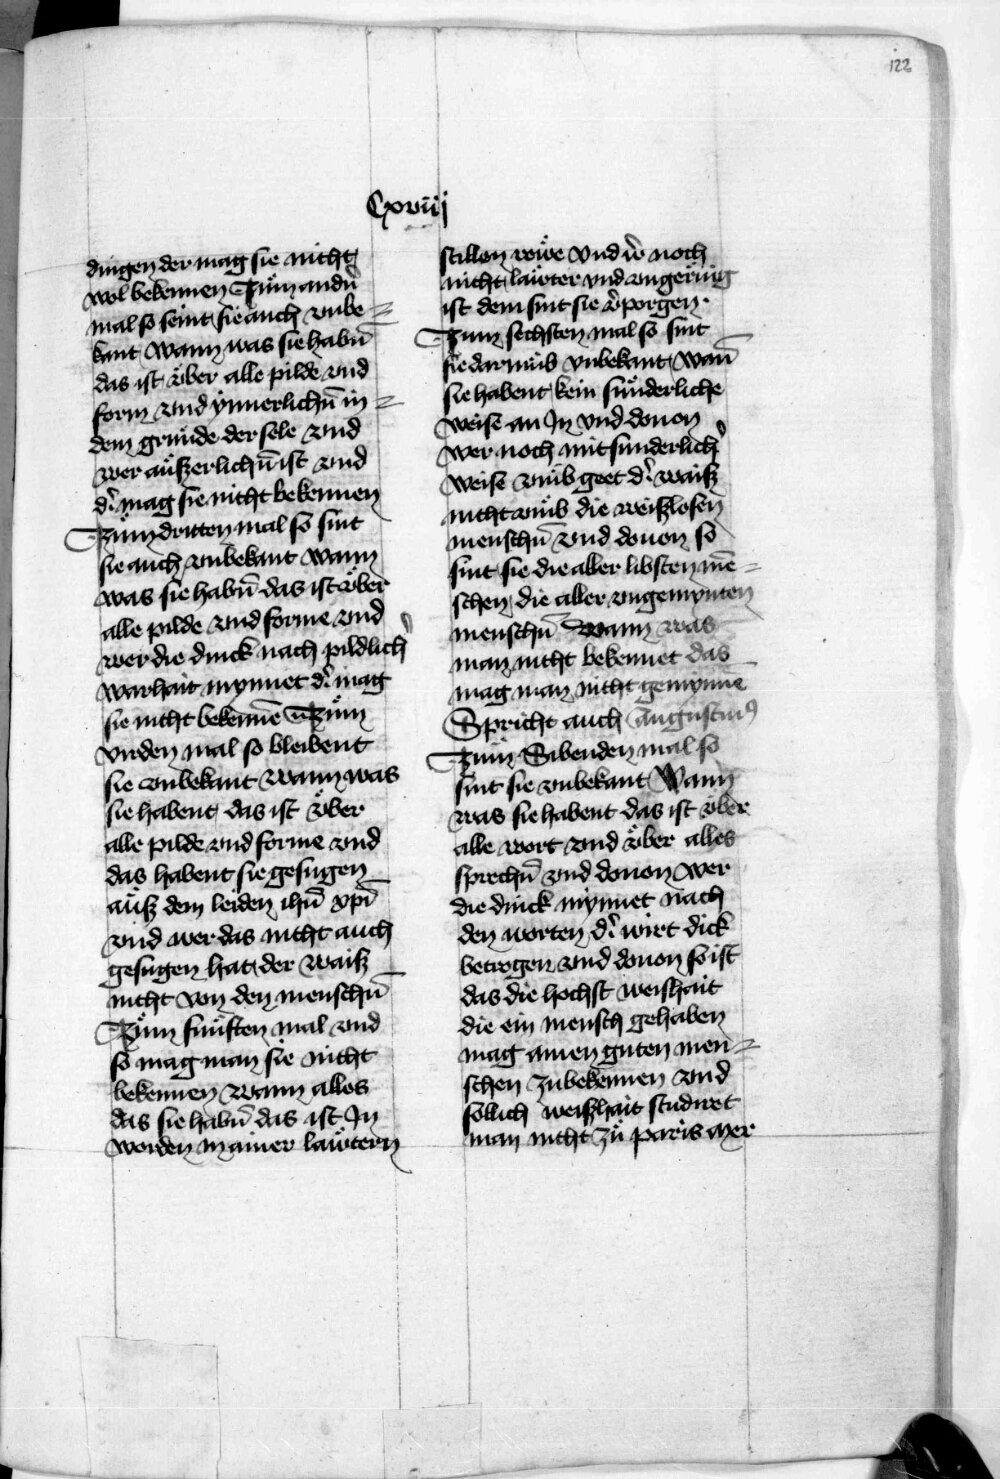 122
Cxviij
dingen der mag sie nicht
wol bekennen Zům andn̄
mal so seint sie auch vnbe=
kant wann was sie habn̄
das ist v̈ber alle pilde vnd
form vnd ynnerlichn̄ in=
dem grunde der sele vnd
wer aüszerlichn̄ ist vnd
d̾ mag sie nicht bekennen
Zům dritten mal so sint
sie auch vnbekant wann
was sie habn̄ das ist v̈ber
alle pilde vnd forme vnd
wer die dinck nach pildlich̾
warhait mynnet d̾ mag
sie nicht bekenne̅ Zům
virden mal so bleibent
sie vnbekant wann was
sie habent das ist v̈ber
alle pilde vnd forme vnd
das habent sie gesugen
aüsz dem leiden ihū xpī
vnd wer das nicht auch
gesugen hat der waisz
nicht von den menschn̄
Zům fünften mal vnd
so mag man sie nicht
bekennen wann alles
das sie habn̄ das ist In
worden In ainer laütern
stillen rwe vnd w̾ noch
nicht laüter vnd vngerüig
ist dem sint sie v̾porgen.
Zum sechsten mal so sint
sie darumb vnbekant wan̄
sie habent kein sünderliche
weise an In vnd douon
wer noch mit sunderlich̾
weise vmb geet d̾ waisz
nicht vmb die weiszlosen
menschn̄ vnd douon so
sint sie die aller libsten me̅=
schen die aller vngemynten
menschn̄ wann was
man nicht bekennet das
mag man nicht gemynne̅
Spricht auch augustinꝰ
Zům Sibenden mal so
sint sie vnbekant Wann
was sie habent das ist v̈ber
alle wort vnd v̈ber alles
sprechn̄ vnd douon wer
die dinck mynnet nach
den worten d̾ wirt dick
betrogen vnd douon so ist
das die hochst weishait
die ein mensch gehaben
mag ainen guten men=
schen zubekennen vnd
sollich weiszhait studiret
man nicht zů paris mer